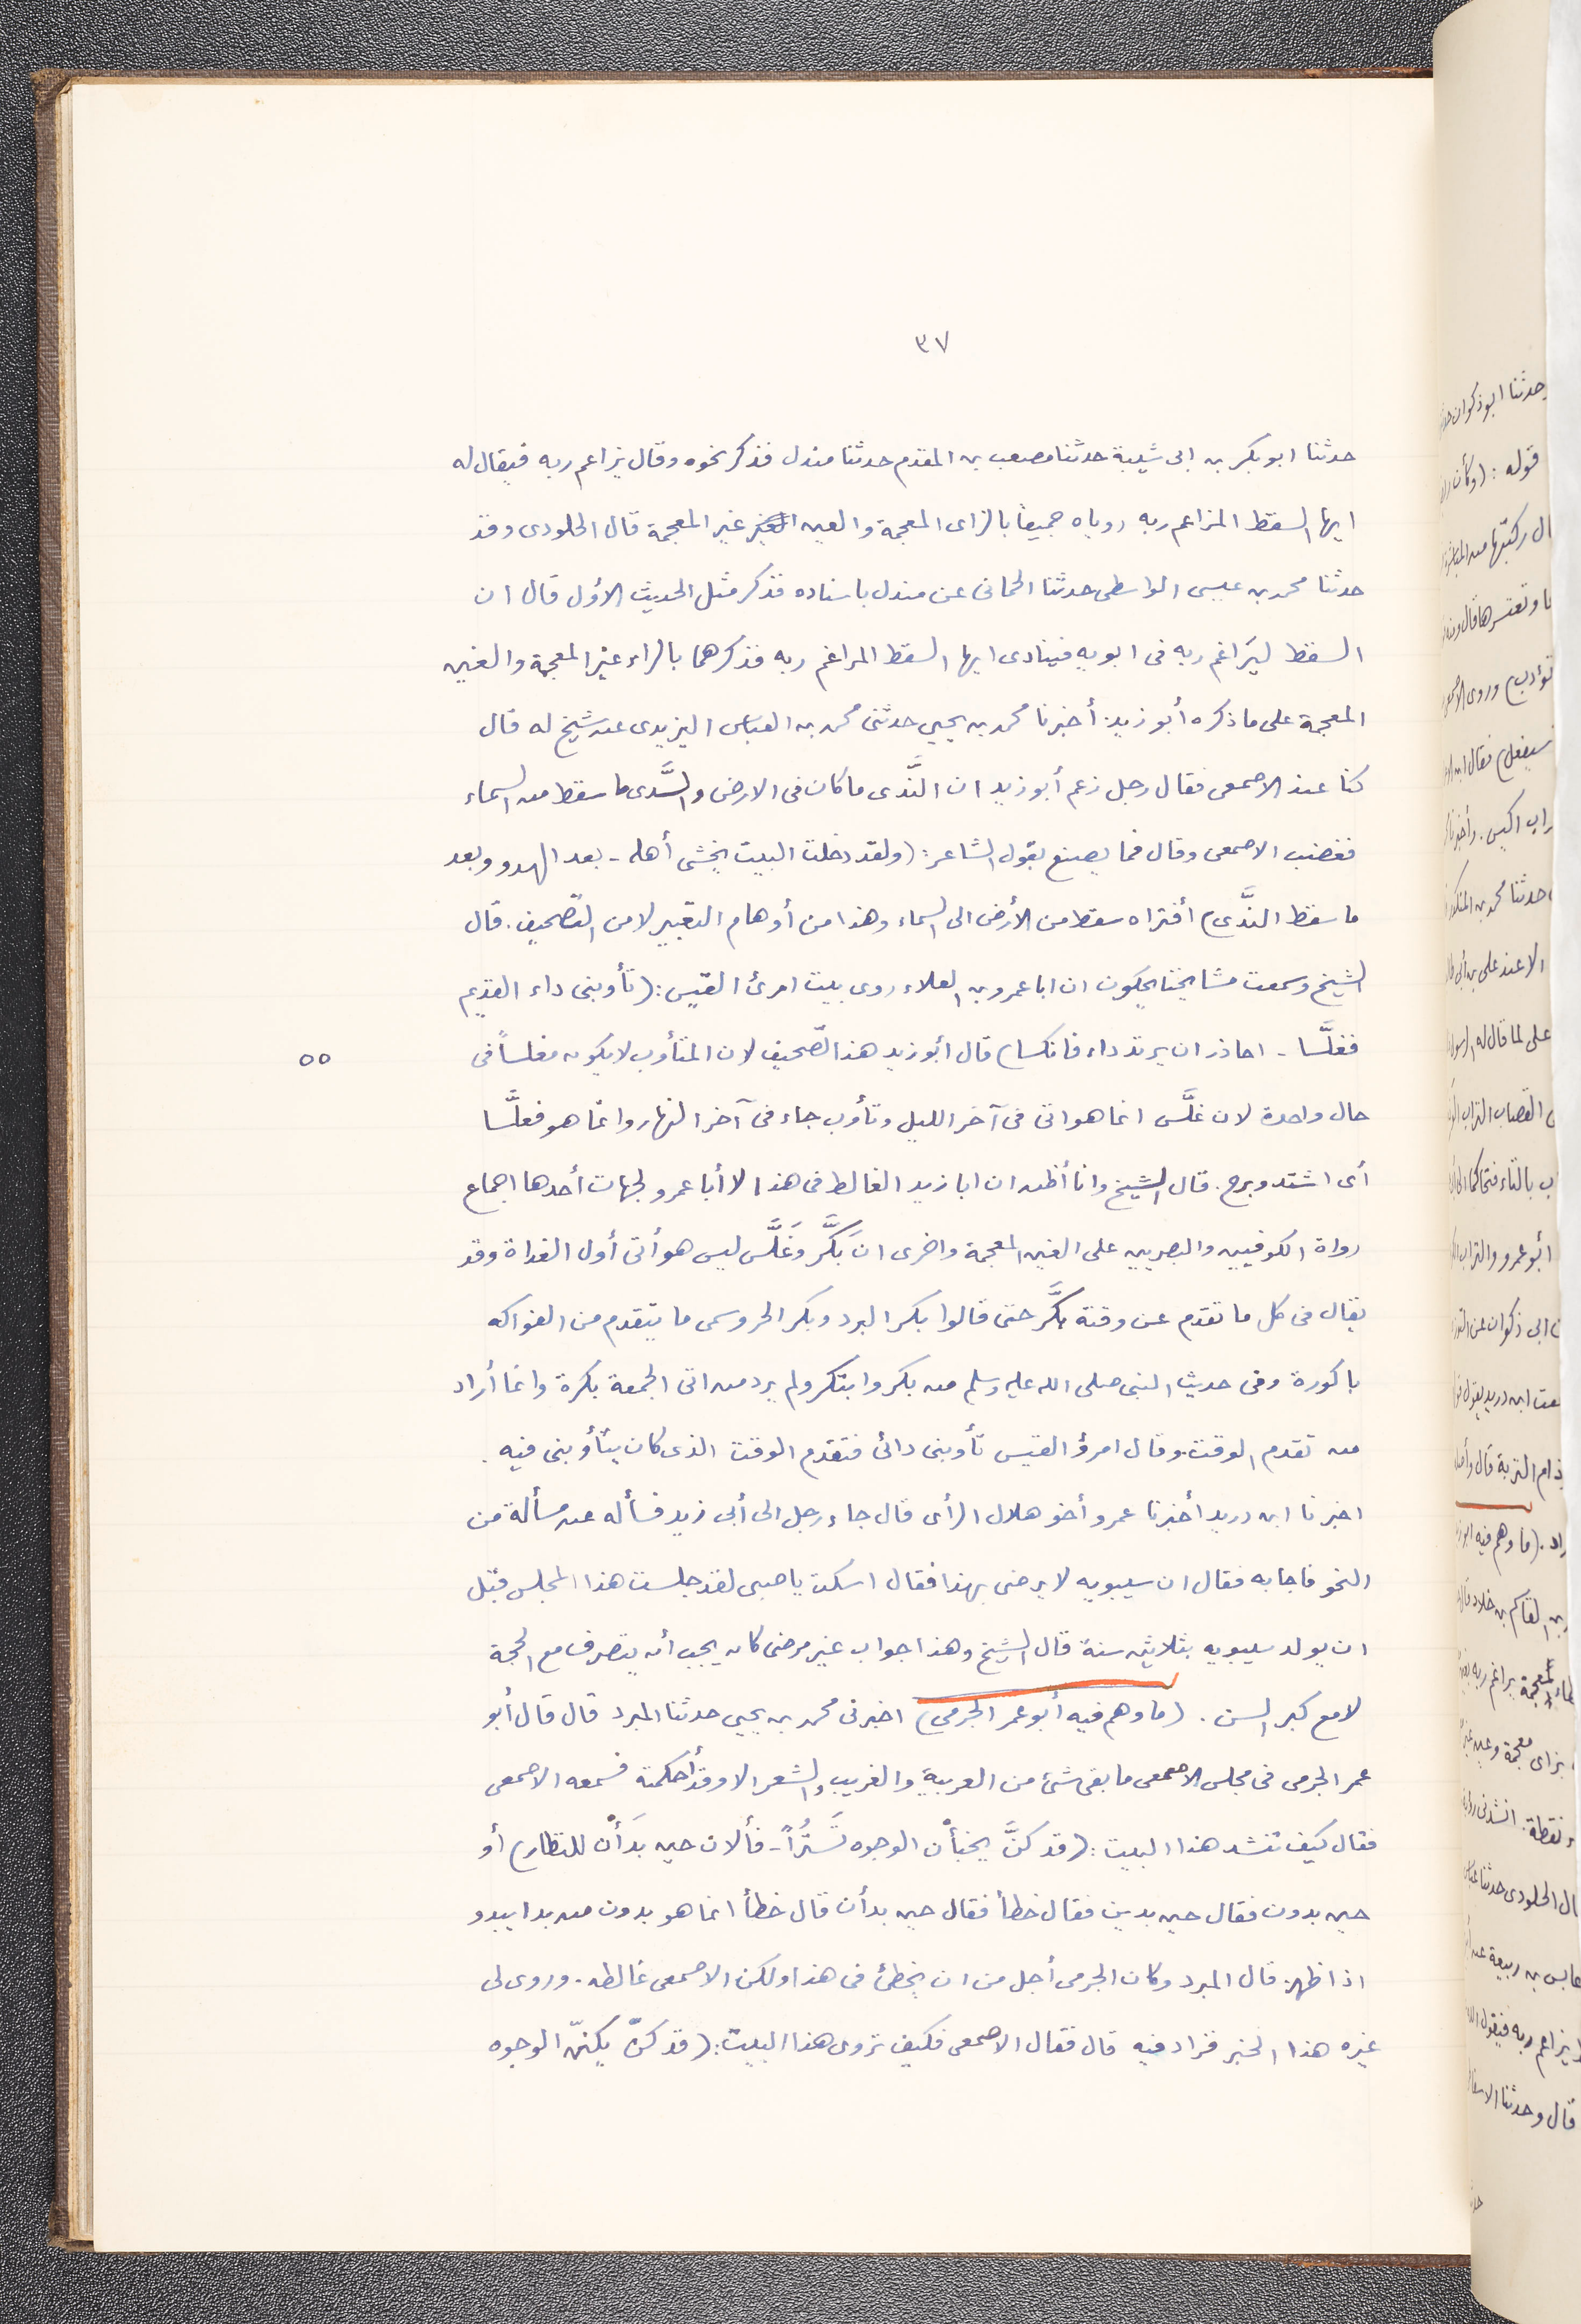 ٣٧
حدثنا ابو بكر بن ابى شيبة حدثنا مصعب بن المقدم حدثنا مندل فذكر نحوه وقال يزاعم ربه فيقال له
ايها السقط المزاعم ربه روياه جميعا بالزاى المعجمة والعين غير المعجمة قال الجلودى وقد
حدثنا محمد بن عيسى الواسطى حدثنا الحمانى عن مندل باسناده فذكر مثل الحديث الأول قال ان
السقط ليَراغم ربه فى ابويه فينادى ايها السقط المراغم ربه فذكرهما بالراء غير المعجمة والغين
المعجمة على ما ذكره أبو زيد. أخبرنا محمد بن يحيى حدثنى محمد بن العباس اليزيدى عن شيخ له قال
كنا عند الاصمعى فقال رجل زعم أبو زيد ان النَّدى ما كان فى الارض والسَّدى ما سقط من السماء
فغضب الاصمعى وقال فما يصنع بقول الشاعر: (ولقد دخلت البيت يخشى أهله - بعد الهدو وبعد
ما سقط النَّدى) أفتراه سقط من الأرض الى السماء وهذا من أوهام التغيير لا من التصحيف. قال
الشيخ وسمعت مشايخنا يحكون ان ابا عمرو بن العلاء روى بيت امرئ القيس: (تأوبنى داء القديم
فغلَّسا - احاذر ان يرتد داء فانكسا) قال أبو زيد هذا التصحيف لان المتأوب لا يكون مغلساً فى
٥٥
حال واحدة لان غلَّس انما هو اتى فى آخر الليل وتأوب جاء فى آخر النهار وانما هو فعلَّسا
أى اشتد وبرح. قال الشيخ وانا أظن ان ابا زيد الغالط فى هذا لا أبا عمرو لجهات أحدها اجماع
رواة الكوفيين والبصريين على الغين المعجمة واخرى ان بَكَّر وغَلَّس ليس هو أتى أول الغداة وقد
يقال فى كل ما تقدم عن وقته بكَّر حتى قالوا بكر البرد وبكر الحر وسمى ما يتقدم من الفواكه
باكورة وفى حديث النبى صلى الله عليه وسلم من بكر وابتكر ولم يرد من اتى الجمعة بكرة وانما أراد
من تقدم الوقت. وقال امرؤ القيس تأوبنى دائى فتقدم الوقت الذى كان يتأوبنى فيه.
اخبرنا ابن دريد أخبرنا عمرو أخو هلال الرأى قال جاء رجل الى أبى زيد فسأله عن مسألة من
النحو فاجابه فقال ان سيبويه لا يرضى بهذا فقال اسكت يا صبى لقد جلست هذا المجلس قبل
ان يولد سيبويه بثلاثين سنة قال الشيخ وهذا جواب غير مرضى كان يجب أن يتصرف مع الحجة
لا مع كبر السن. (ما وهم فيه أبو عمر الجرمي) اخبرنى محمد بن يحيى حدثنا المبرد قال قال أبو
عمر الجرمى فى مجلس الاصمعى ما بقى شئ من العربية والغريب والشعر الا وقد أحكمته فسمعه الاصمعى
فقال كيف تنشد هذا البيت: (قد كنَّ يخبأن الوجوه تَسَتُّراً - فألان حين بَدَأْن للنظار) أو
حين بدون فقال حين بدين فقال خطأ فقال حين بدأن قال خطأ انما هو بدون من بدا يبدو
اذا ظهر. قال المبرد وكان الجرمى أجل من ان يخطئ فى هذا ولكن الاصمعى غالطه. وروى لى
غيره هذا الخبر فزاد فيه قال فقال الاصمعى فكيف تروى هذا البيت: (قد كنّ يكننّ الوجوه